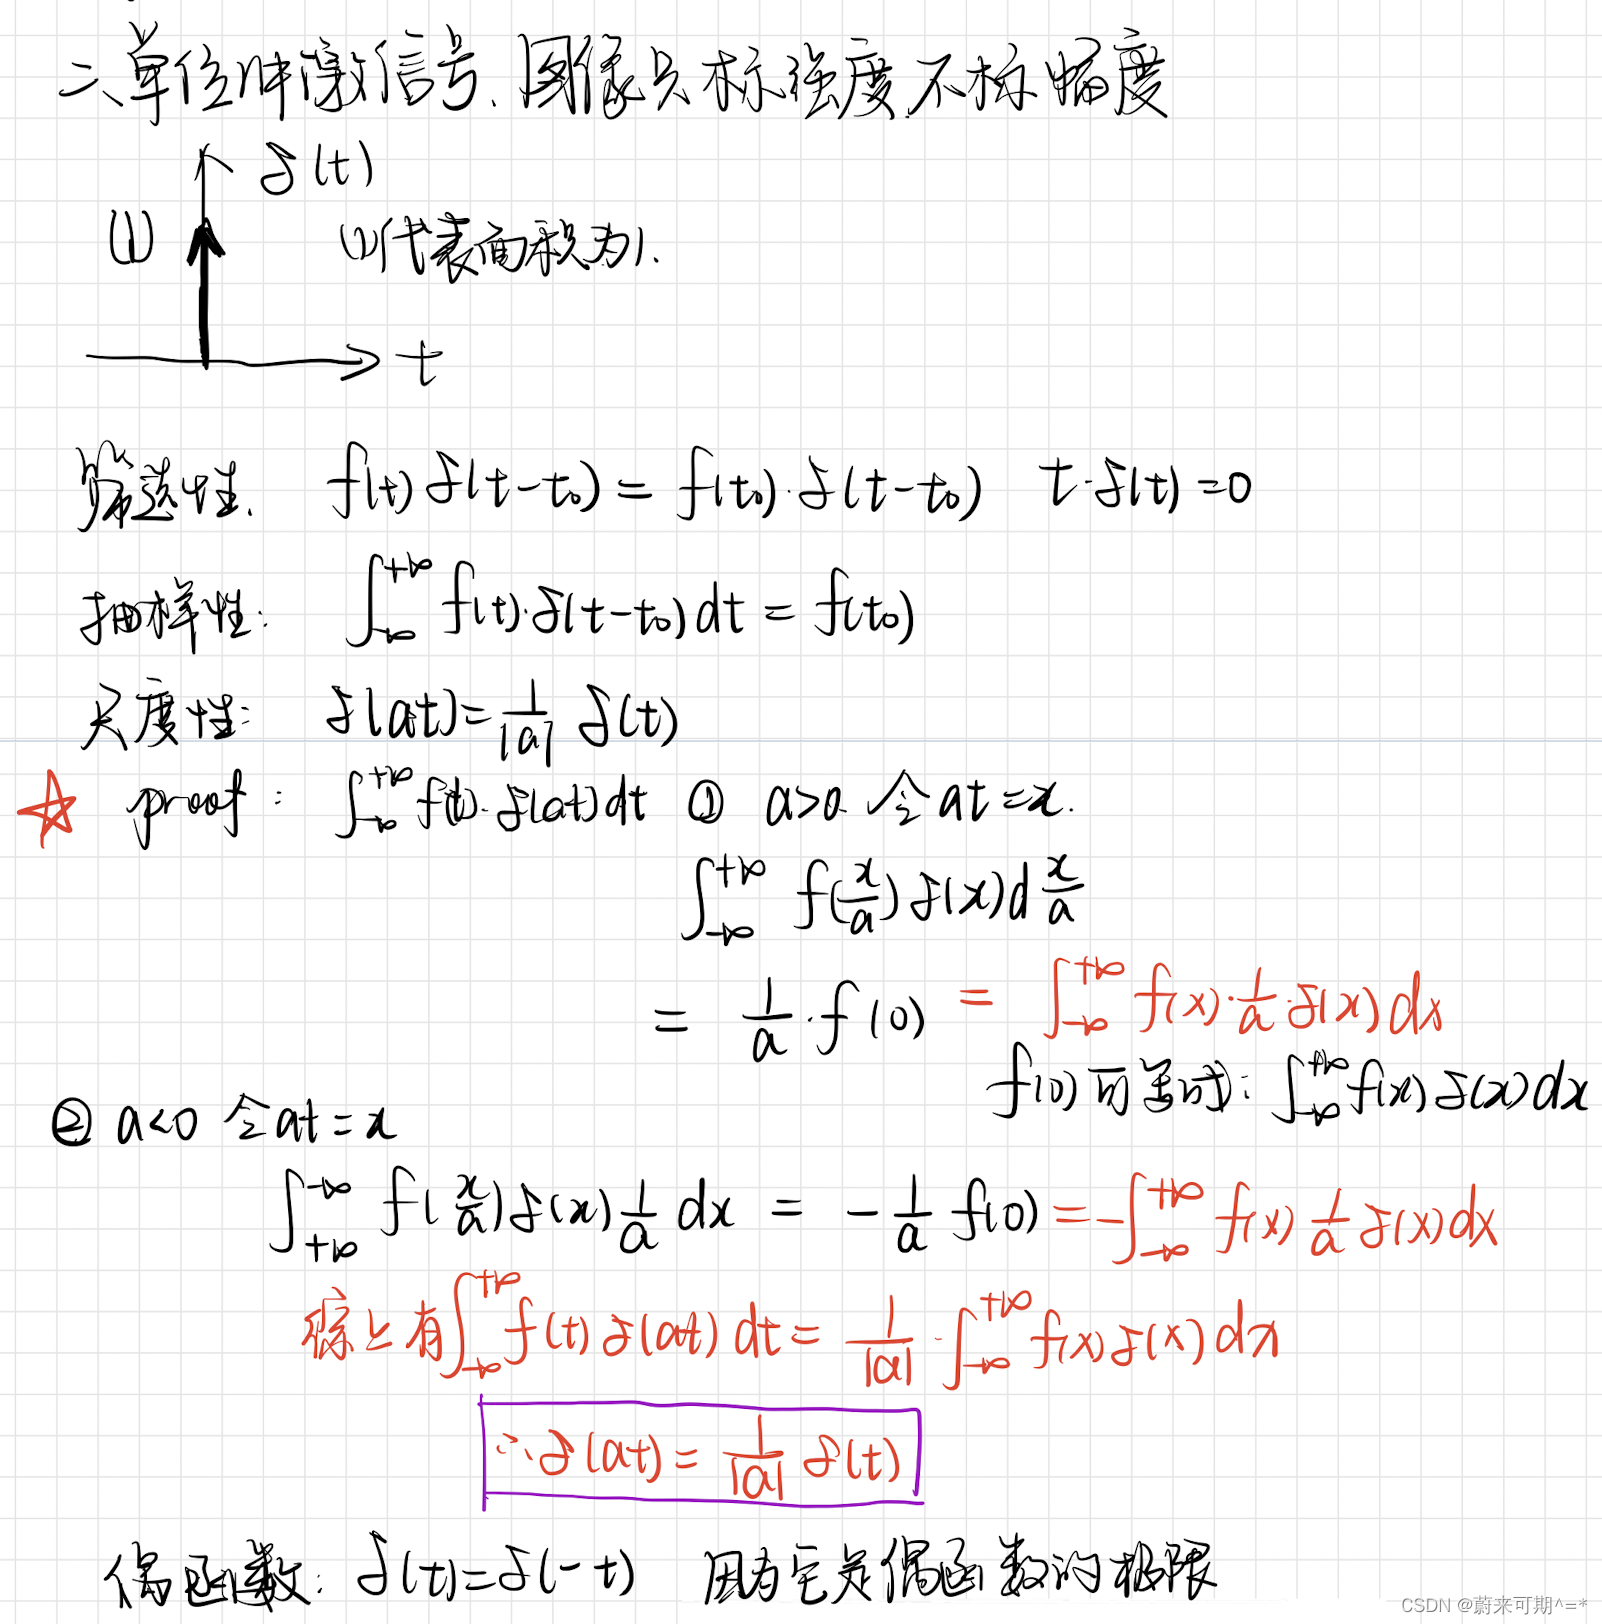 二、单位冲激信号、图像只标强度不标幅度
δ(t)
(1) (1)代表面积为1.
t
筛选性. f(t)δ(t-t₀)=f(t₀)·δ(t-t₀) t·δ(t)=0
抽样性: ∫_{-∞}^{+∞} f(t)·δ(t-t₀)dt = f(t₀)
尺度性: δ(at)=1/|a| δ(t)
☆ proof: ∫_{-∞}^{+∞} f(t)·δ(at)dt ① a>0. 令at=x.
∫_{-∞}^{+∞} f(x/a)δ(x)d x/a
= 1/a·f(0) = ∫_{-∞}^{+∞} f(x)·1/a·δ(x)dx
f(0)可写成: ∫_{-∞}^{+∞} f(x)δ(x)dx
② a<0 令at=x
∫_{+∞}^{-∞} f(x/a)δ(x)1/a dx = -1/a f(0) = -∫_{-∞}^{+∞} f(x) 1/a δ(x)dx
综上有∫_{-∞}^{+∞} f(t)δ(at)dt = 1/|a|·∫_{-∞}^{+∞} f(x)δ(x)dx
∴δ(at)=1/|a| δ(t)
偶函数: δ(t)=δ(-t) 因为它是偶函数的极限
CSDN @蔚来可期^=*